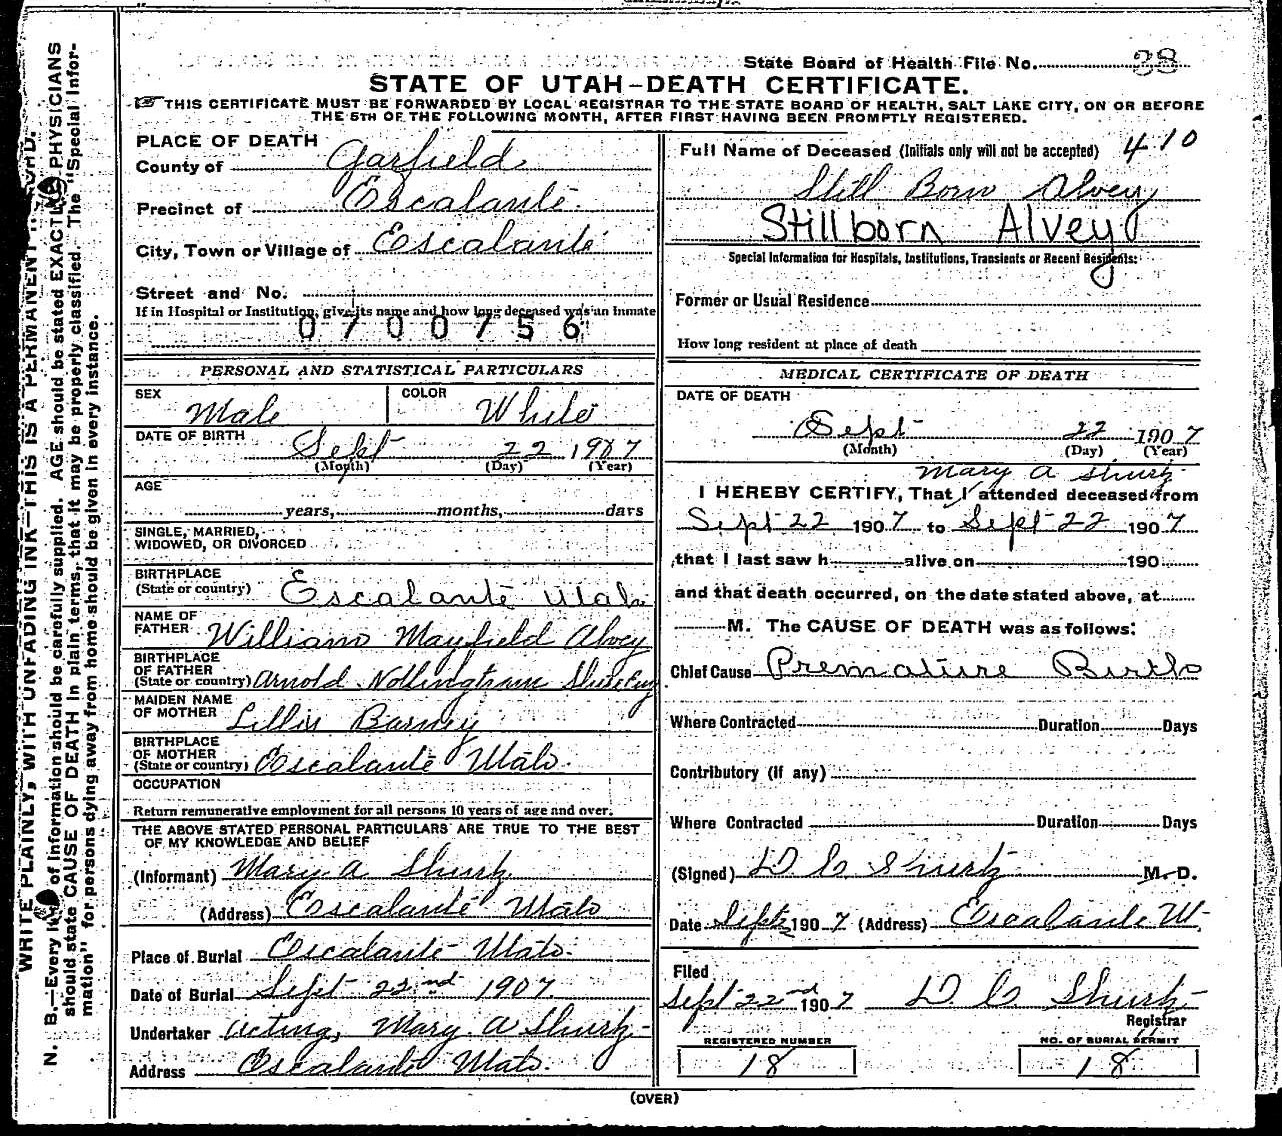 State Board of Health File No. 38
STATE OF UTAH-DEATH CERTIFICATE.
THIS CERTIFICATE MUST BE FORWARDED BY LOCAL REGISTRAR TO THE STATE BOARD OF HEALTH, SALT LAKE CITY, ON OR BEFORE
THE 5TH OF THE FOLLOWING MONTH, AFTER FIRST HAVING BEEN PROMPTLY REGISTERED.
PLACE OF DEATH
County of Garfield
Precinct of Escalante
City, Town or Village of Escalante
Street and No.
If in Hospital or Institution, give its name and how long deceased was an inmate
0700756
PERSONAL AND STATISTICAL PARTICULARS
SEX Male COLOR White
DATE OF BIRTH Sept 22 1907
(Month) (Day) (Year)
AGE
years, months, days
SINGLE, MARRIED,
WIDOWED, OR DIVORCED
BIRTHPLACE
(State or country) Escalante Utah
NAME OF
FATHER William Mayfield Alvey
BIRTHPLACE
OF FATHER
(State or country) Arnold Nottingham Shire Eng
MAIDEN NAME
OF MOTHER Lillis Barney
BIRTHPLACE
OF MOTHER
(State or country) Escalante Utah.
OCCUPATION
Return remunerative employment for all persons 10 years of age and over.
THE ABOVE STATED PERSONAL PARTICULARS ARE TRUE TO THE BEST
OF MY KNOWLEDGE AND BELIEF
(Informant) Mary A Shurtz
(Address) Escalante Utah
Place of Burial Escalante Utah.
Date of Burial Sept 22nd 1907.
Undertaker acting, Mary A Shurtz
Address Escalante Utah.
410
Full Name of Deceased (Initials only will not be accepted)
Still Born Alvey
Stillborn Alvey
Special Information for Hospitals, Institutions, Transients or Recent Residents:
Former or Usual Residence
How long resident at place of death
MEDICAL CERTIFICATE OF DEATH
DATE OF DEATH
Sept 22 1907
(Month) (Day) (Year)
Mary A Shurtz
I HEREBY CERTIFY, That I attended deceased from
Sept 22 1907 to Sept 22 1907
that I last saw h alive on 190
and that death occurred, on the date stated above, at
M. The CAUSE OF DEATH was as follows:
Chief Cause Premature Birth
Where Contracted Duration Days
Contributory (if any)
Where Contracted Duration Days
(Signed) D C Shurtz M.D.
Date Sept 1907 (Address) Escalante Ut
Filed
Sept 22nd 1907 D C Shurtz
Registrar
REGISTERED NUMBER NO. OF BURIAL PERMIT
18 18
(OVER)
WRITE PLAINLY, WITH UNFADING INK—THIS IS A PERMANENT RECORD.
N. B.—Every item of information should be carefully supplied. AGE should be stated EXACTLY PHYSICIANS
should state CAUSE OF DEATH in plain terms, that it may be properly classified. The "Special Infor-
mation" for persons dying away from home should be given in every instance.